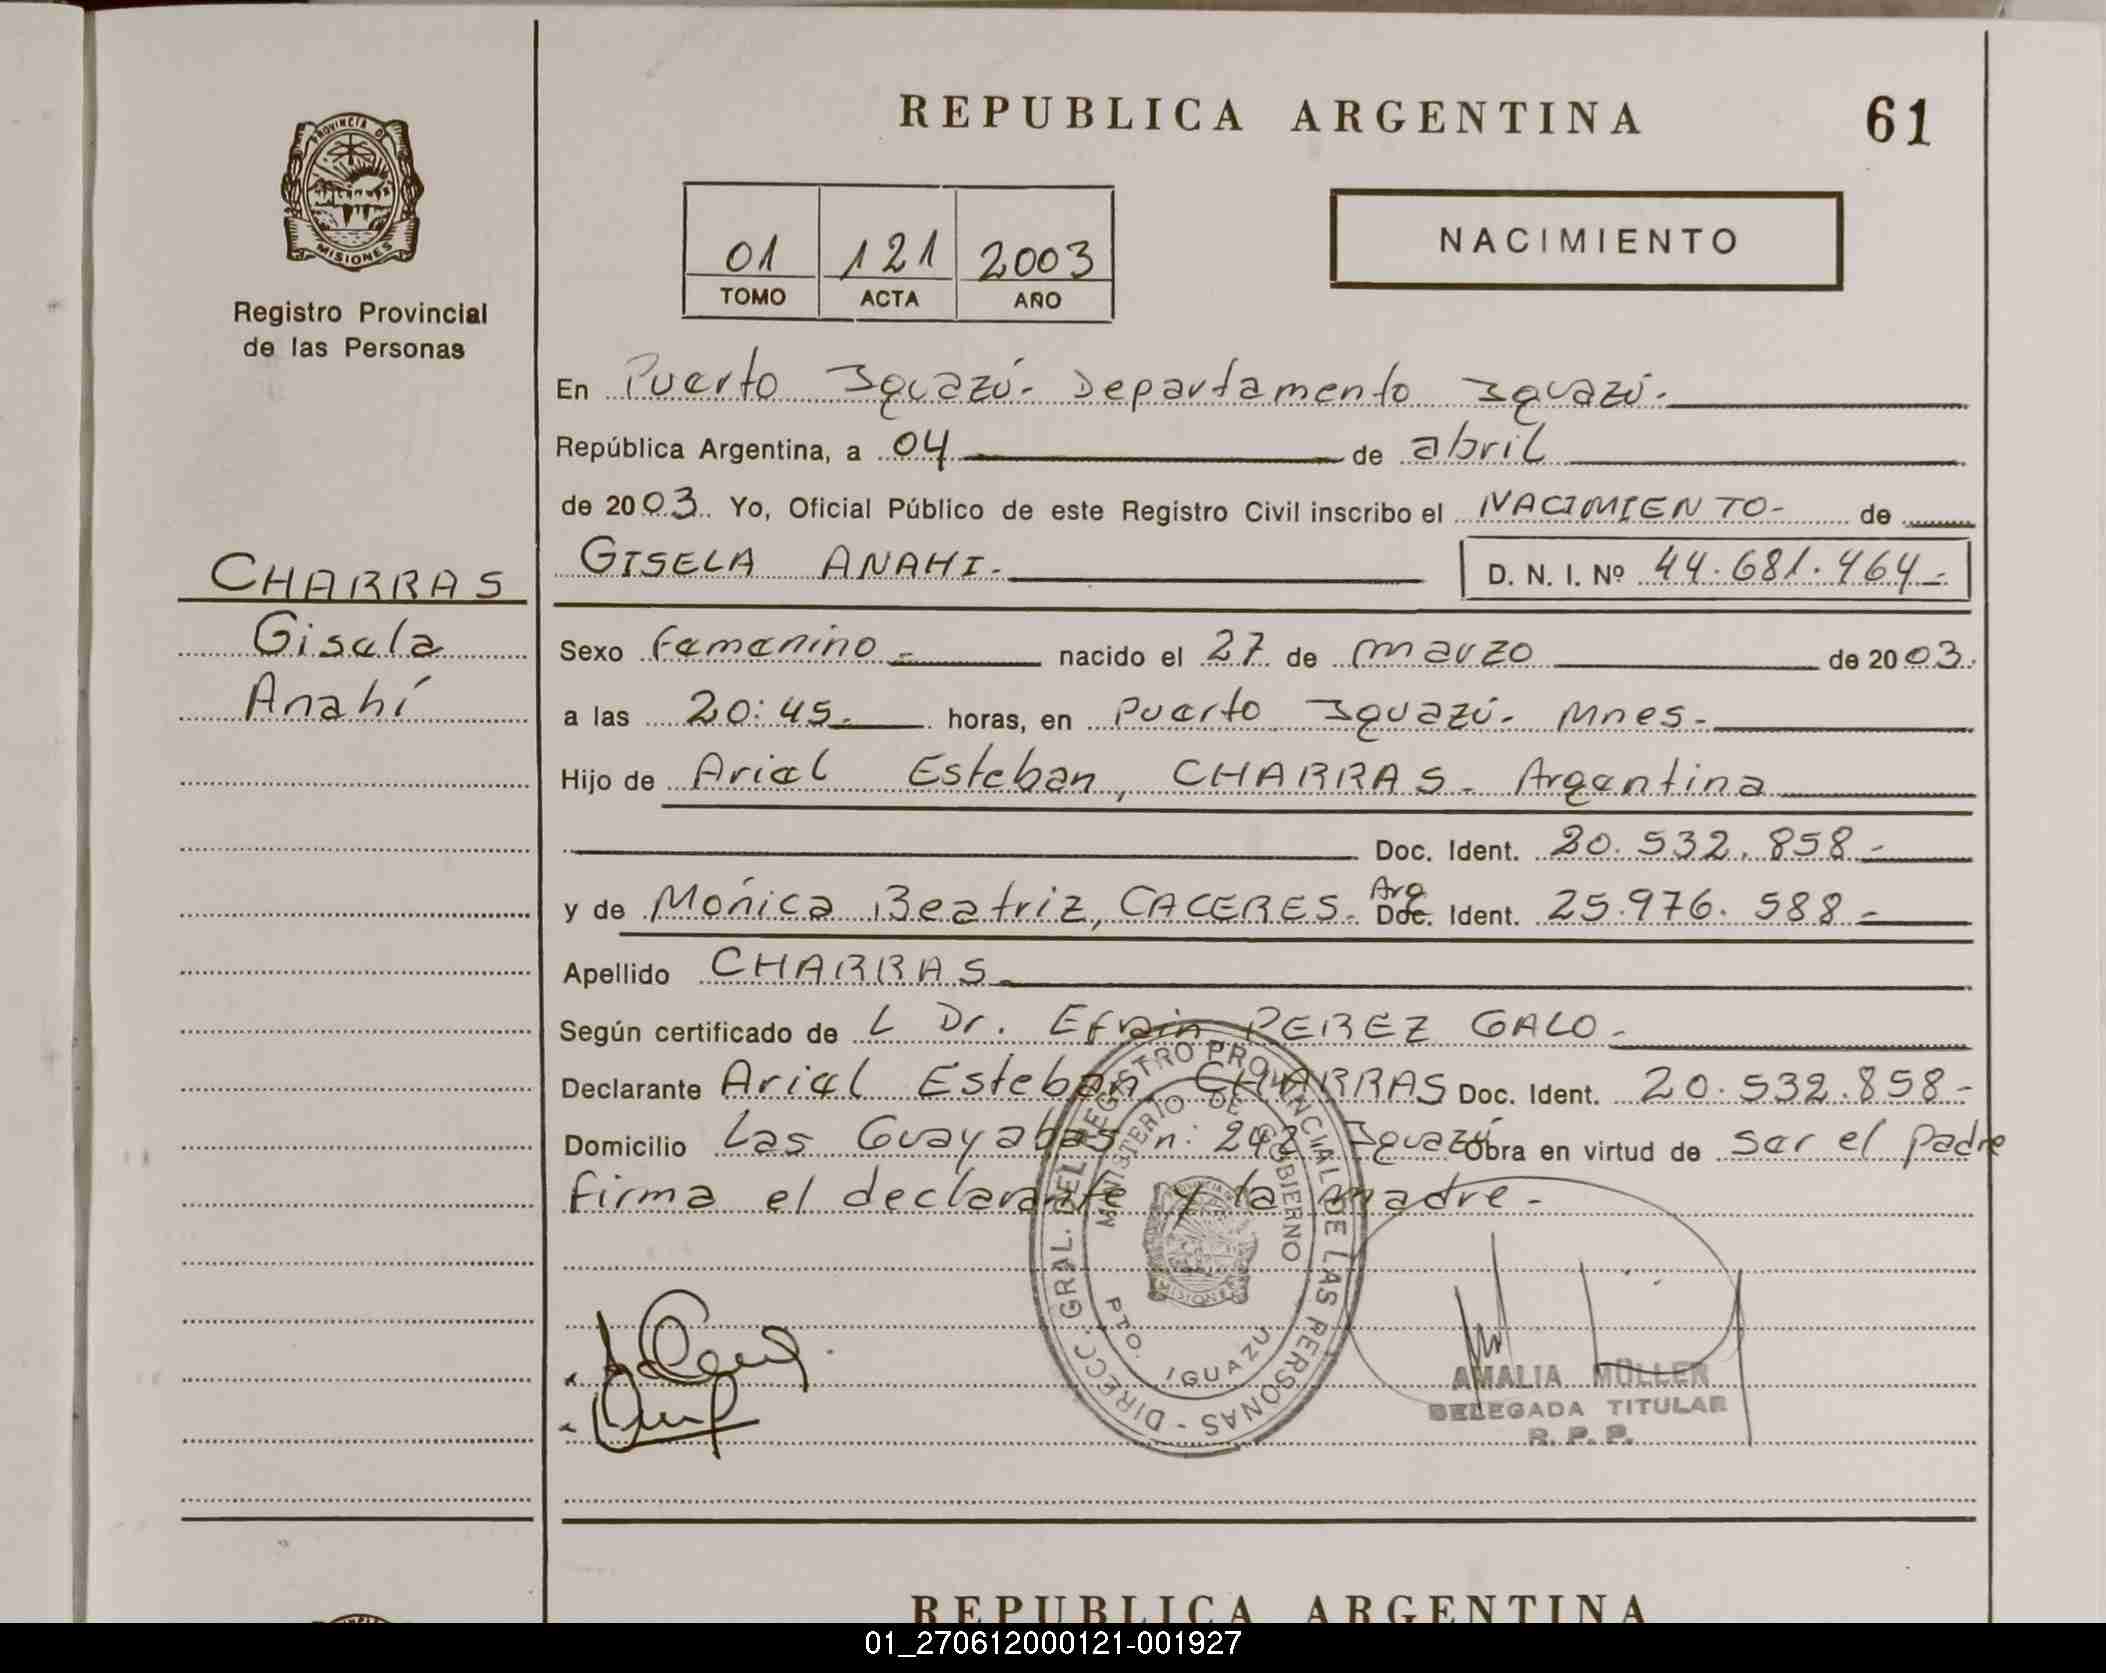 PROVINCIA DE
MISIONES
Registro Provincial
de las Personas
CHARRAS
Gisela
Anahí
REPUBLICA ARGENTINA
61
01 121 2003
TOMO ACTA AÑO
NACIMIENTO
En Puerto Iguazú- Departamento Iguazú-
República Argentina, a 04 de abril
de 2003. Yo, Oficial Público de este Registro Civil inscribo el NACIMIENTO- de
GISELA ANAHI- D. N. I. Nº 44.681.464-
Sexo Femenino- nacido el 27 de marzo de 2003.
a las 20:45- horas, en Puerto Iguazú- Mnes-
Hijo de Ariel Esteban, CHARRAS- Argentina
Doc. Ident. 20.532.858-
y de Mónica Beatriz, CACERES- Arg Doc. Ident. 25.976.588-
Apellido CHARRAS-
Según certificado de L Dr. Efrain PEREZ GALO-
Declarante Ariel Esteban, CHARRAS Doc. Ident. 20.532.858-
Domicilio Las Guayabas n: 248 Iguazú Obra en virtud de ser el padre
firma el declarante y la madre-
DIRECC. GRAL. DEL REGISTRO PROVINCIAL DE LAS PERSONAS -
MINISTERIO DE GOBIERNO
PTO. IGUAZU
AMALIA MÜLLER
DELEGADA TITULAR
R. P. P.
REPUBLICA ARGENTINA
01_270612000121-001927